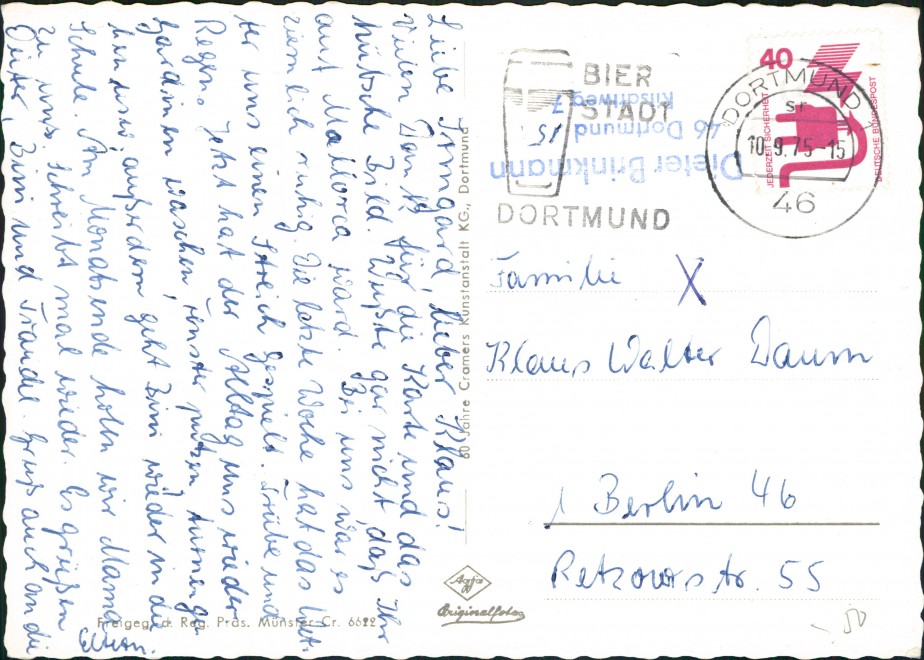 Liebe Irmgard, lieber Klaus!
Vielen Dank für die Karte und das
hübsche Bild. Wußte gar nicht daß Ihr
auf Mallorca ward. Bei uns war es
ziemlich ruhig. Die letzte Woche hat das Wet-
ter uns einen Streich gespielt. Trübe und
Regen. Jetzt hat der Alltag uns wieder
Gardinen waschen, Fenster putzen, turnen ge-
hen usw. außerdem geht Bini wieder in die
Schule. Am Monatsende holen wir Mama
zu uns. Schreibt mal wieder. Es grüßen
Dieter, Bini und Traudel. Gruß auch an die
Eltern.
60 Jahre Cramers Kunstanstalt KG., Dortmund
Freigeg. d. Reg. Präs. Münster Cr. 6622
Agfa
Originalfoto
BIER
STADT
DORTMUND
Dieter Brinkmann
46 Dortmund 15
DORTMUND
sr
10.9.75-15
46
40
JEDERZEIT SICHERHEIT
DEUTSCHE BUNDESPOST
Familie X
Klaus Walter Daum
1 Berlin 46
Retzowstr. 55
50